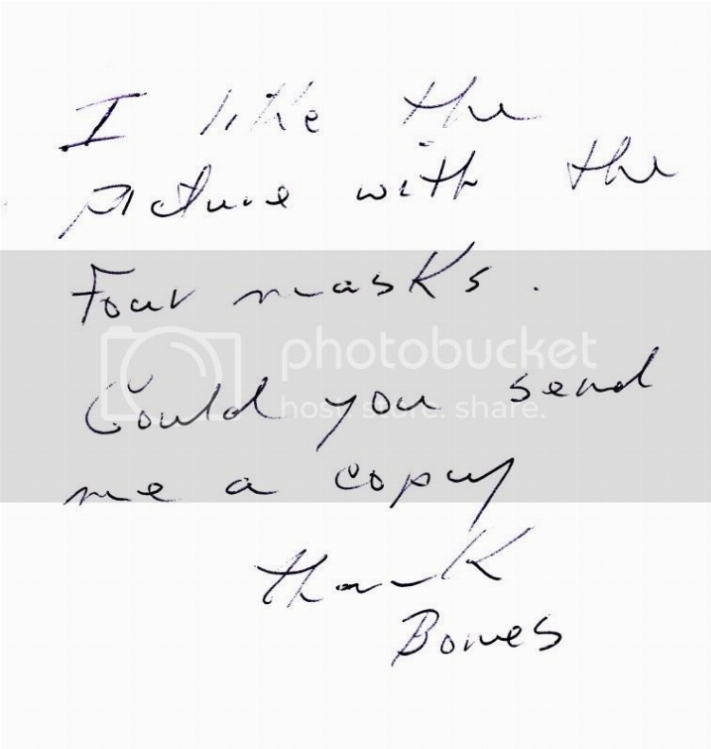 I like the
picture with the
Four masks.
photobucket
host. store. share.
Could you send
me a copy
thank
Bones